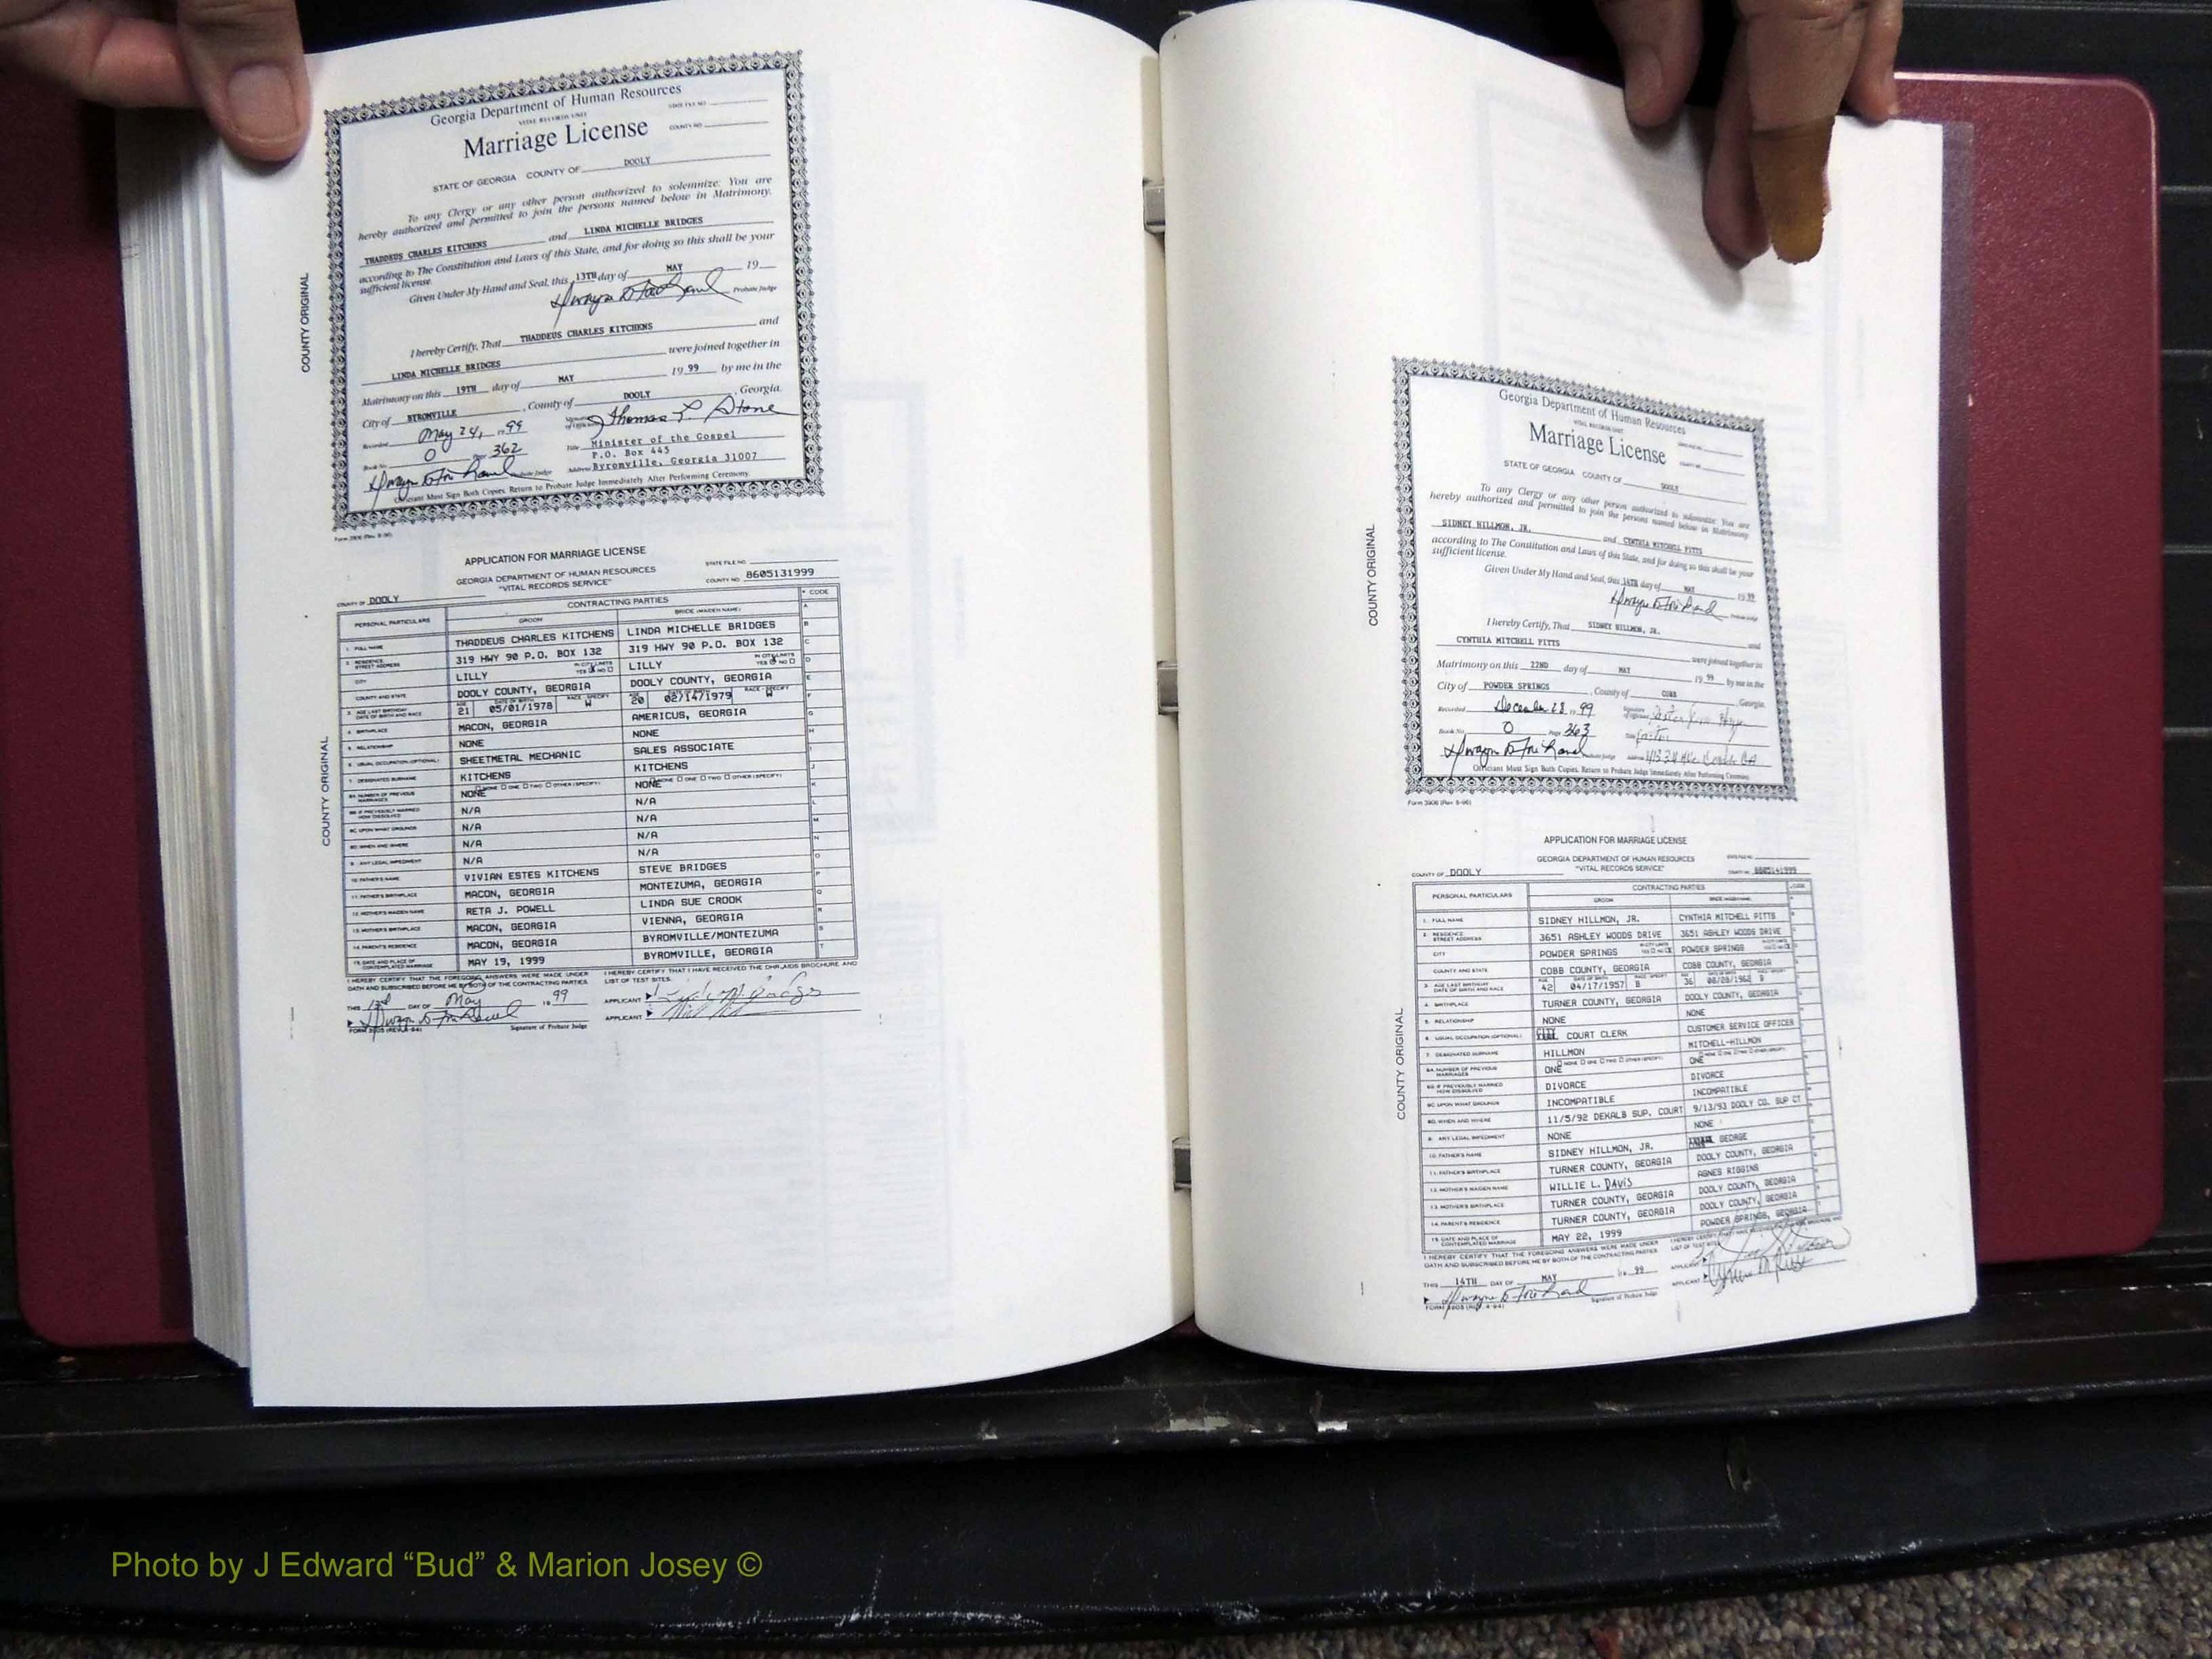 Georgia Department of Human Resources
VITAL RECORDS UNIT
STATE FILE NO.
Marriage License
COUNTY NO.
STATE OF GEORGIA COUNTY OF DOOLY
To any Clergy or any other person authorized to solemnize: You are
hereby authorized and permitted to join the persons named below in Matrimony.
THADDEUS CHARLES KITCHENS and LINDA MICHELLE BRIDGES
according to The Constitution and Laws of this State, and for doing so this shall be your
sufficient license.
Given Under My Hand and Seal, this 13TH day of MAY 19
Probate Judge
I hereby Certify, That THADDEUS CHARLES KITCHENS and
LINDA MICHELLE BRIDGES were joined together in
Matrimony on this 19TH day of MAY 19 99 by me in the
City of BYROMVILLE, County of DOOLY, Georgia.
Recorded May 24, 1999 Thomas P. Stone
Book No. O Page 362 Title Minister of the Gospel
P.O. Box 445
Probate Judge Address Byromville, Georgia 31007
Officiant Must Sign Both Copies. Return to Probate Judge Immediately After Performing Ceremony.
Form 3906 (Rev. 8-96)
COUNTY ORIGINAL
APPLICATION FOR MARRIAGE LICENSE
GEORGIA DEPARTMENT OF HUMAN RESOURCES
STATE FILE NO.
"VITAL RECORDS SERVICE"
COUNTY NO. 8605131999
COUNTY OF DOOLY
CONTRACTING PARTIES * CODE
PERSONAL PARTICULARS GROOM BRIDE (MAIDEN NAME)
1. FULL NAME THADDEUS CHARLES KITCHENS LINDA MICHELLE BRIDGES
2. RESIDENCE STREET ADDRESS 319 HWY 90 P.O. BOX 132 319 HWY 90 P.O. BOX 132
CITY LILLY IN CITY LIMITS YES NO LILLY IN CITY LIMITS YES NO
COUNTY AND STATE DOOLY COUNTY, GEORGIA DOOLY COUNTY, GEORGIA
3. AGE LAST BIRTHDAY DATE OF BIRTH AND RACE 21 05/01/1978 W 20 02/14/1979 W
4. BIRTHPLACE MACON, GEORGIA AMERICUS, GEORGIA
5. RELATIONSHIP NONE NONE
6. USUAL OCCUPATION (OPTIONAL) SHEETMETAL MECHANIC SALES ASSOCIATE
7. DESIGNATED SURNAME KITCHENS KITCHENS
8A. NUMBER OF PREVIOUS MARRIAGES NONE NONE
8B. IF PREVIOUSLY MARRIED HOW DISSOLVED N/A N/A
8C. UPON WHAT GROUNDS N/A N/A
8D. WHEN AND WHERE N/A N/A
9. ANY LEGAL IMPEDIMENT N/A N/A
10. FATHER'S NAME VIVIAN ESTES KITCHENS STEVE BRIDGES
11. FATHER'S BIRTHPLACE MACON, GEORGIA MONTEZUMA, GEORGIA
12. MOTHER'S MAIDEN NAME RETA J. POWELL LINDA SUE CROOK
13. MOTHER'S BIRTHPLACE MACON, GEORGIA VIENNA, GEORGIA
14. PARENT'S RESIDENCE MACON, GEORGIA BYROMVILLE/MONTEZUMA
15. DATE AND PLACE OF CONTEMPLATED MARRIAGE MAY 19, 1999 BYROMVILLE, GEORGIA
I HEREBY CERTIFY THAT THE FOREGOING ANSWERS WERE MADE UNDER I HEREBY CERTIFY THAT I HAVE RECEIVED THE DHR, AIDS BROCHURE AND
OATH AND SUBSCRIBED BEFORE ME BY BOTH OF THE CONTRACTING PARTIES. LIST OF TEST SITES.
THIS DAY OF May 19 99 APPLICANT
APPLICANT
FORM 3905 (REV. 4-94) Signature of Probate Judge
COUNTY ORIGINAL
Georgia Department of Human Resources
VITAL RECORDS UNIT
Marriage License
STATE OF GEORGIA COUNTY OF DOOLY
To any Clergy or any other person authorized to solemnize: You are
hereby authorized and permitted to join the persons named below in Matrimony.
SIDNEY HILLMON, JR. and CYNTHIA MITCHELL PITTS
according to The Constitution and Laws of this State, and for doing so this shall be your
sufficient license.
Given Under My Hand and Seal, this 14TH day of MAY 19 99
Probate Judge
I hereby Certify, That SIDNEY HILLMON, JR. and
CYNTHIA MITCHELL PITTS were joined together in
Matrimony on this 22ND day of MAY 19 99 by me in the
City of POWDER SPRINGS, County of COBB, Georgia.
Recorded December 28, 1999
Book No. O Page 363 Title
Probate Judge Address
Officiant Must Sign Both Copies. Return to Probate Judge Immediately After Performing Ceremony.
Form 3906 (Rev. 8-96)
COUNTY ORIGINAL
APPLICATION FOR MARRIAGE LICENSE
GEORGIA DEPARTMENT OF HUMAN RESOURCES
"VITAL RECORDS SERVICE"
COUNTY OF DOOLY COUNTY NO. 8605141999
CONTRACTING PARTIES
PERSONAL PARTICULARS GROOM
1. FULL NAME SIDNEY HILLMON, JR. CYNTHIA MITCHELL PITTS
2. RESIDENCE STREET ADDRESS 3651 ASHLEY WOODS DRIVE 3651 ASHLEY WOODS DRIVE
CITY POWDER SPRINGS POWDER SPRINGS
COUNTY AND STATE COBB COUNTY, GEORGIA COBB COUNTY, GEORGIA
3. AGE LAST BIRTHDAY DATE OF BIRTH AND RACE 42 04/17/1957 B 36
4. BIRTHPLACE TURNER COUNTY, GEORGIA DOOLY COUNTY, GEORGIA
5. RELATIONSHIP NONE NONE
6. USUAL OCCUPATION (OPTIONAL) COURT CLERK CUSTOMER SERVICE OFFICER
7. DESIGNATED SURNAME HILLMON MITCHELL-HILLMON
8A. NUMBER OF PREVIOUS MARRIAGES ONE ONE
8B. IF PREVIOUSLY MARRIED HOW DISSOLVED DIVORCE DIVORCE
8C. UPON WHAT GROUNDS INCOMPATIBLE INCOMPATIBLE
8D. WHEN AND WHERE 11/5/92 DEKALB SUP. COURT 9/13/93 DOOLY CO. SUP CT
9. ANY LEGAL IMPEDIMENT NONE NONE
10. FATHER'S NAME SIDNEY HILLMON, JR. GEORGE
11. FATHER'S BIRTHPLACE TURNER COUNTY, GEORGIA DOOLY COUNTY, GEORGIA
12. MOTHER'S MAIDEN NAME WILLIE L. DAVIS AGNES RIGGINS
13. MOTHER'S BIRTHPLACE TURNER COUNTY, GEORGIA DOOLY COUNTY, GEORGIA
14. PARENT'S RESIDENCE TURNER COUNTY, GEORGIA DOOLY COUNTY, GEORGIA
15. DATE AND PLACE OF CONTEMPLATED MARRIAGE MAY 22, 1999 POWDER SPRINGS, GEORGIA
I HEREBY CERTIFY THAT THE FOREGOING ANSWERS WERE MADE UNDER
OATH AND SUBSCRIBED BEFORE ME BY BOTH OF THE CONTRACTING PARTIES. LIST OF TEST SITES.
THIS 14TH DAY OF MAY 19 99 APPLICANT
APPLICANT
FORM 3905 (REV. 4-94) Signature of Probate Judge
COUNTY ORIGINAL
Photo by J Edward “Bud” & Marion Josey ©